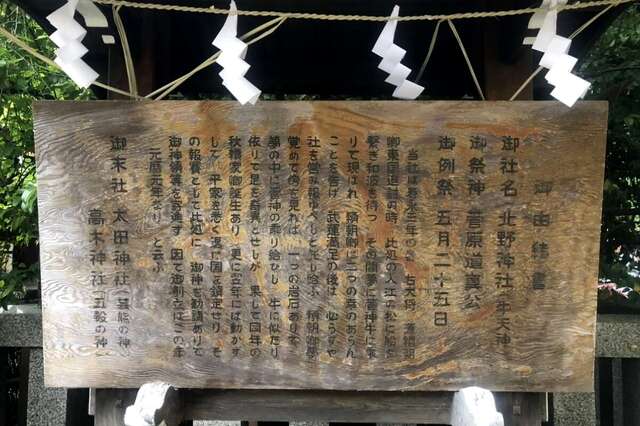 御由緒書
御社名 北野神社(牛天神)
御祭神 菅原道真公
御例祭 五月二十五日
当社は寿永三年の春 右大将 源頼朝
卿東国追討の時 此処の入江の松に船を
繋ぎ和波を待つ その間夢に菅神牛に乗
りて現はれ 頼朝卿に二つの幸のあらん
ことを告げ 武運満足の後は 必らずや
社を営み報ゆべしとし給ふ 頼朝卿夢
覚めて傍を見れば 一つの岩石ありて
夢の中に菅神の乗り給ひし 牛に似たり
依りて是を奇異とせしが 果して同年の
秋頼家卿誕生あり 更に翌年には動かず
して 平家を悉く遠に国を鎮定せり そ
の報賽として此処に 御神を勧請ありて
御神領等を寄進す 因て御創立はこの年
元暦元年なり と云ふ
御末社 太田神社(芸能の神)
高木神社(五穀の神)